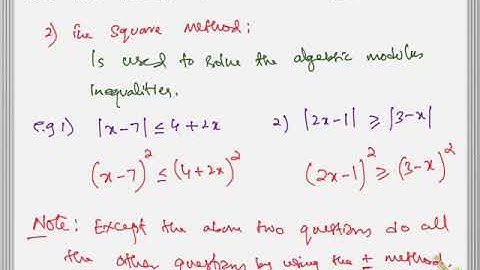 2) The Square Method:
Is used to solve the algebraic modulus
inequalities.
e.g 1) |x-7| ≤ 4+2x 2) |2x-1| ≥ |3-x|
(x-7)² ≤ (4+2x)² (2x-1)² ≥ (3-x)²
Note: Except the above two questions do all
the other questions by using the ± method